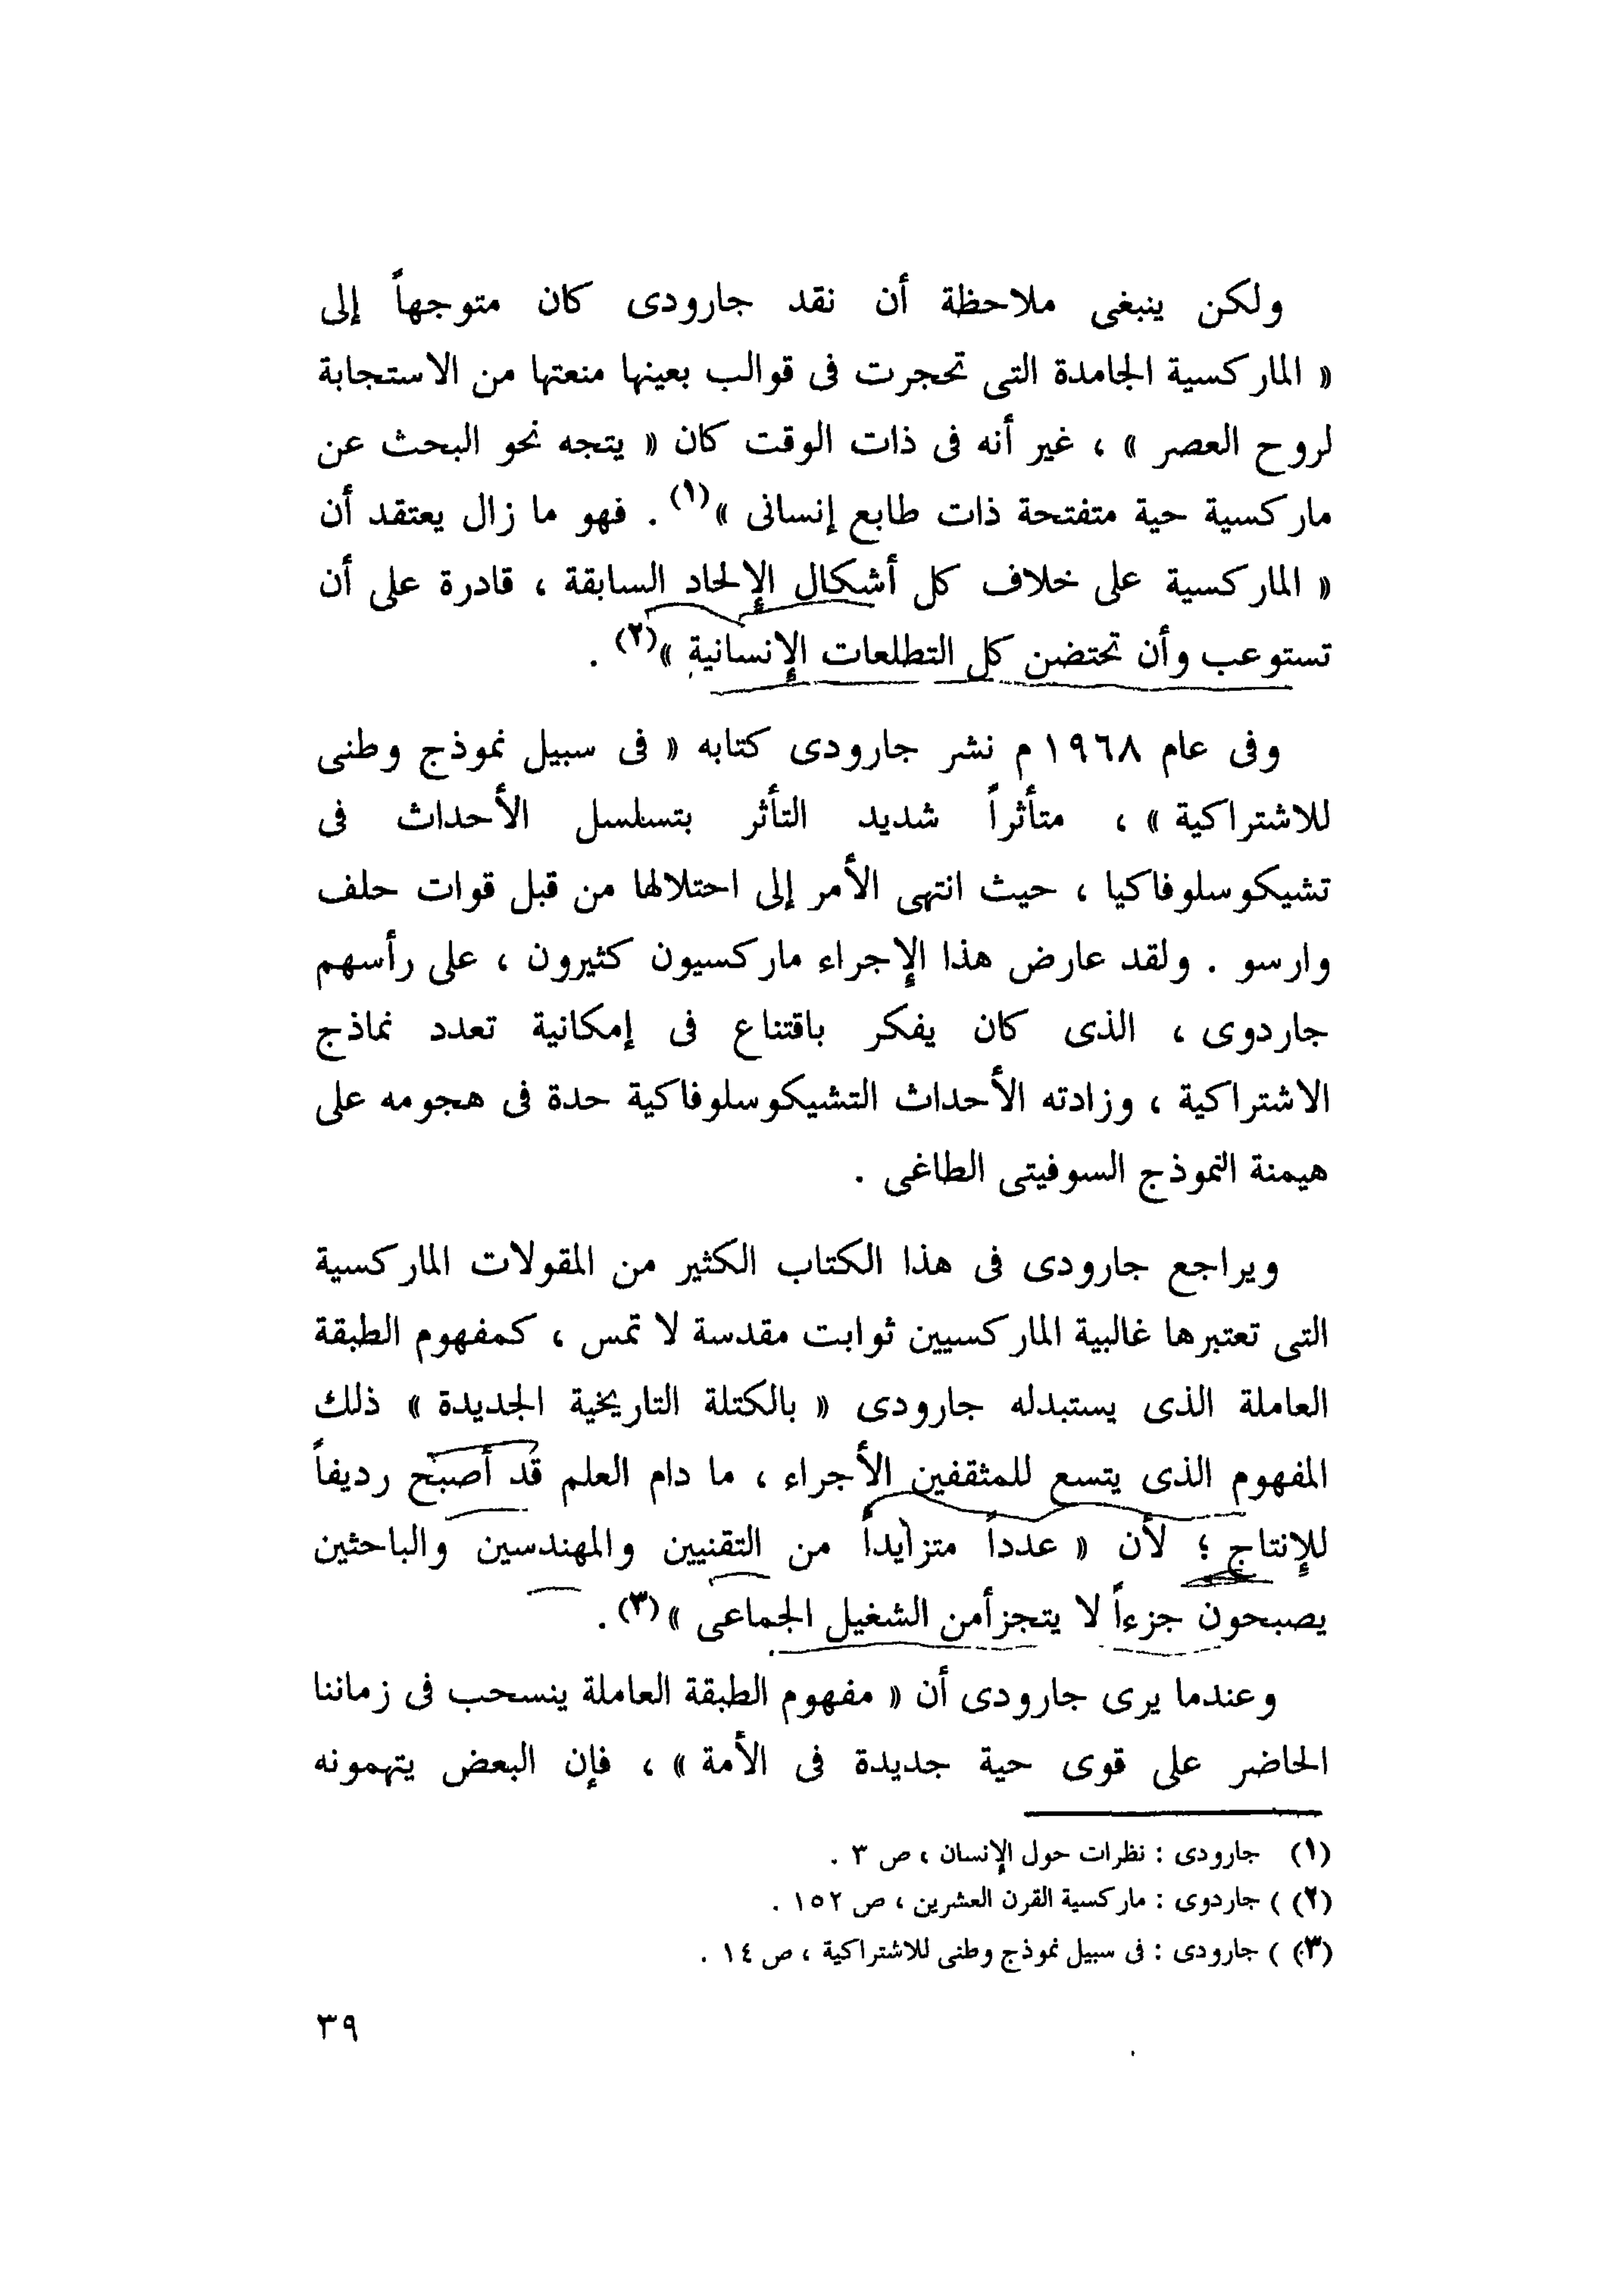 ولكن ينبغى ملاحظة أن نقد جارودى كان متوجهاً إلى
« الماركسية الجامدة التى تحجرت فى قوالب بعينها منعتها من الاستجابة
لروح العصر » ، غير أنه فى ذات الوقت كان « يتجه نحو البحث عن
ماركسية حية متفتحة ذات طابع إنسانى »(١) . فهو ما زال يعتقد أن
« الماركسية على خلاف كل أشكال الإلحاد السابقة ، قادرة على أن
تستوعب وأن تحتضن كل التطلعات الإنسانية »(٢) .
وفى عام ١٩٦٨ م نشر جارودى كتابه « فى سبيل نموذج وطنى
للاشتراكية » ، متأثراً شديد التأثر بتسلسل الأحداث فى
تشيكوسلوفاكيا ، حيث انتهى الأمر إلى احتلالها من قبل قوات حلف
وارسو . ولقد عارض هذا الإجراء ماركسيون كثيرون ، على رأسهم
جاردوى ، الذى كان يفكر باقتناع فى إمكانية تعدد نماذج
الاشتراكية ، وزادته الأحداث التشيكوسلوفاكية حدة فى هجومه على
هيمنة النموذج السوفيتى الطاغى .
ويراجع جارودى فى هذا الكتاب الكثير من المقولات الماركسية
التى تعتبرها غالبية الماركسيين ثوابت مقدسة لا تمس ، كمفهوم الطبقة
العاملة الذى يستبدله جارودى « بالكتلة التاريخية الجديدة » ذلك
المفهوم الذى يتسع للمثقفين الأجراء ، ما دام العلم قد أصبح رديفاً
للإنتاج ؛ لأن « عدداً متزايداً من التقنيين والمهندسين والباحثين
يصبحون جزءاً لا يتجزأمن الشغيل الجماعى »(٣) .
وعندما يرى جارودى أن « مفهوم الطبقة العاملة ينسحب فى زماننا
الحاضر على قوى حية جديدة فى الأمة » ، فإن البعض يتهمونه
(١) جارودى : نظرات حول الإنسان ، ص ٣ .
(٢) ) جاردوى : ماركسية القرن العشرين ، ص ١٥٢ .
(٣) ) جارودى : فى سبيل نموذج وطنى للاشتراكية ، ص ١٤ .
٣٩